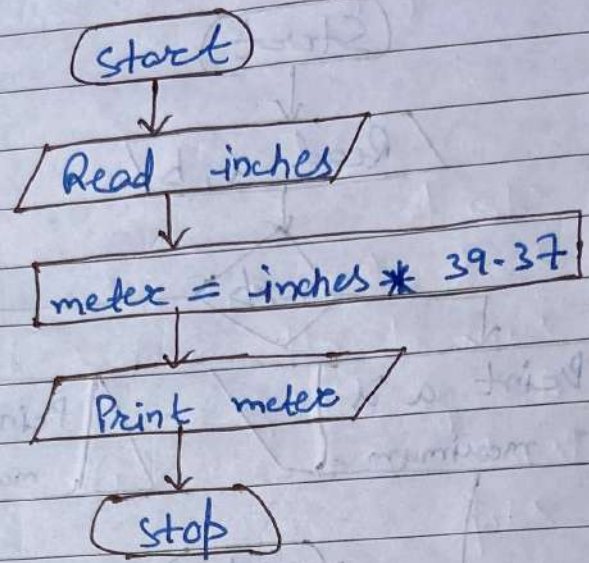 Start
Read inches
meter = inches * 39.37
Print meter
stop